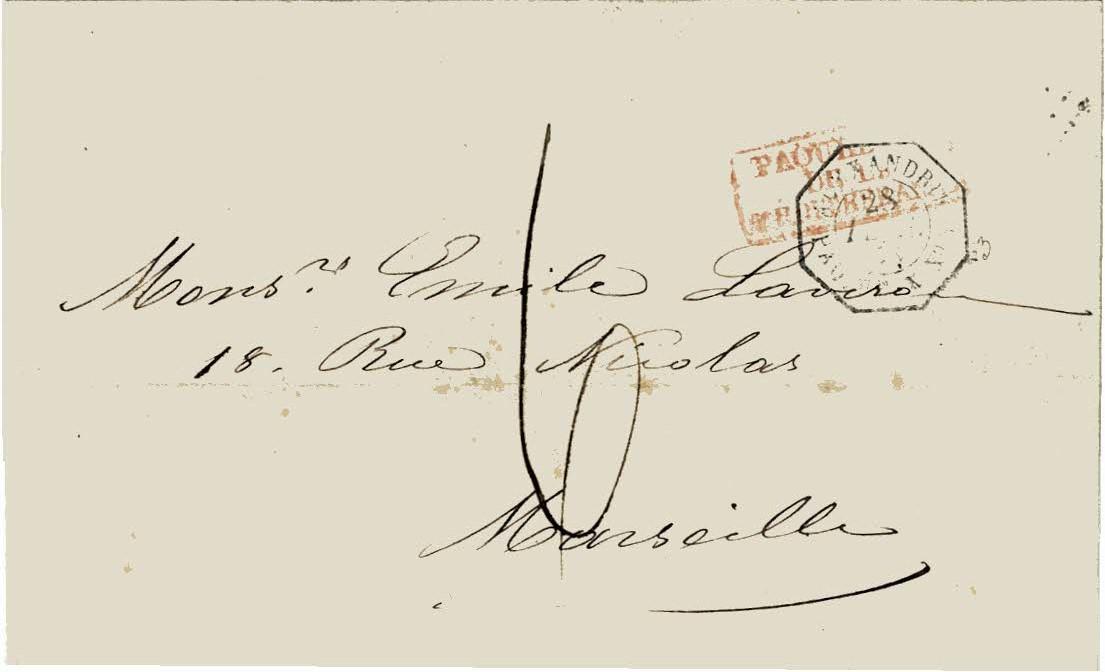 PAQUEB
DE LA
MEDITERRA
ALEXANDRIE
28
PAQ
Mons.r Emile
18. Rue Nicolas
Marseille
6